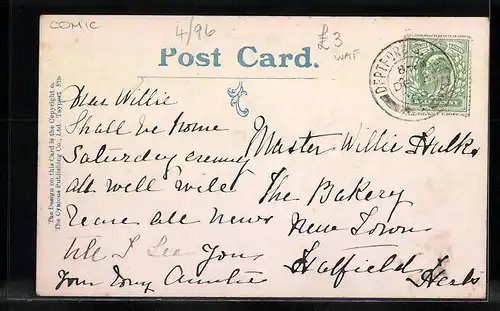 COMIC
4/96
£3
WAF
Post Card.
DEPTFORD S.
HALFPENNY
The Design on this Card is the Copyright of
The Cynicus Publishing Co., Ltd. Tayport, Fife
Dear Willie
Shall be home
Saturday evening
all well will
leave all news
till I see you
your Auntie
Master Willie Hulks
The Bakery
New Town
Hatfield
Herts